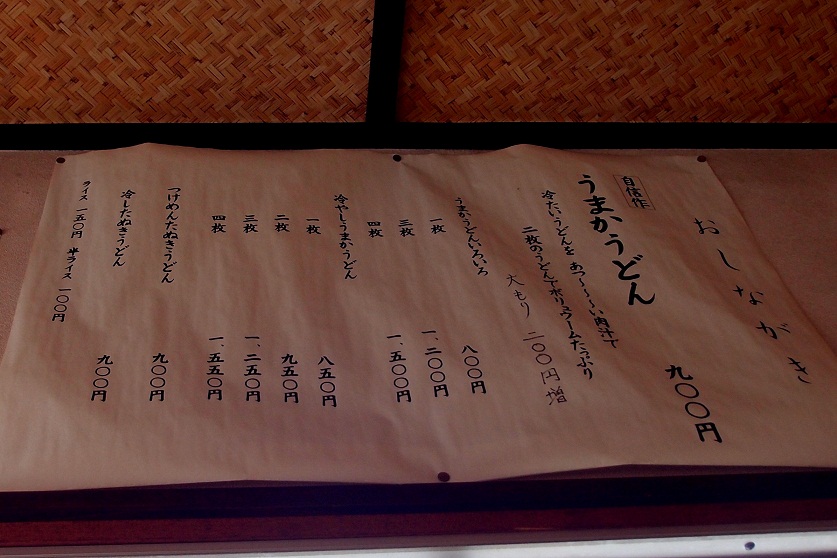 おしながき
自信作
うまかうどん 九〇〇円
冷たいうどんを あつ～～～い肉汁で
二枚のうどんでボリュウームたっぷり
大もり 二〇〇円増
うまかうどんいろいろ
一枚 八〇〇円
三枚 一、二〇〇円
四枚 一、五〇〇円
冷やしうまかうどん
一枚 八五〇円
二枚 九五〇円
三枚 一、二五〇円
四枚 一、五五〇円
つけめんたぬきうどん 九〇〇円
冷したぬきうどん 九〇〇円
ライス 一五〇円 半ライス 一〇〇円